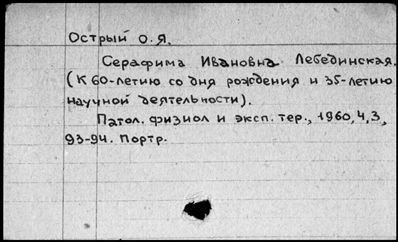 Острый О.Я.
Серафима Ивановна Лебединская.
(К 60-летию со дня рождения и 35-летию
научной деятельности).
Патол. физиол и эксп. тер., 1960, 4, 3,
93-94. Портр.